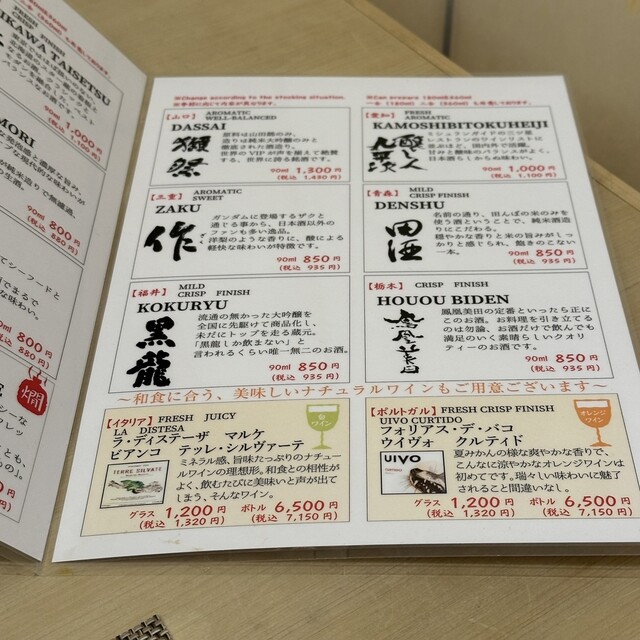 IKAWA TAISETSU
90ml 1,000円
(税込 1,100円)
MORI
90ml 800円
(税込 880円)
燗
※Change according to the stocking situation.
※Can prepare 180ml&360ml
【山口】 AROMATIC
WELL-BALANCED
DASSAI
獺祭
原料は山田錦のみ。
造りは純米大吟醸のみと
徹底された酒造り。
世界のVIPが声を揃えて絶賛
する、世界に誇る銘酒です。
90ml 1,300円
(税込 1,430円)
【愛知】 FRESH
AROMATIC
KAMOSHIBITOKUHEIJI
醸し人九平次
ミシュランガイドの三ツ星
レストランのワインリストに
並ぶほど、国内外で活躍。
甘みと酸味のバランスがよく、
日本酒らしからぬ味わい。
90ml 1,000円
(税込 1,100円)
【三重】 AROMATIC
SWEET
ZAKU
作
ガンダムに登場するザクと
通じる事から、日本酒以外の
ファンも多い逸品。
洋梨のような香りに、酸による
軽快な味わいが特徴です。
90ml 850円
(税込 935円)
【青森】 MILD
CRISP FINISH
DENSHU
田酒
名前の通り、田んぼの米のみを
使う酒ということで、純米酒造
りにこだわる。
穏やかな香りと米の旨みがしっ
かりと感じられ、飽きのこない
一本。
90ml 850円
(税込 935円)
【福井】 MILD
CRISP FINISH
KOKURYU
黒龍
流通の無かった大吟醸を
全国に先駆けて商品化し、
未だにトップを走る蔵元。
「黒龍しか飲まない」と
言われるくらい唯一無二のお酒。
90ml 850円
(税込 935円)
【栃木】 CRISP FINISH
HOUOU BIDEN
鳳凰美田
鳳凰美田の定番といったら正に
このお酒。お料理を引き立てる
のは勿論、お酒だけで飲んでも
満足のいく素晴らしいクオリ
ティーのお酒です。
90ml 850円
(税込 935円)
～和食に合う、美味しいナチュラルワインもご用意ございます～
【イタリア】FRESH JUICY
LA DISTESA
ラ・ディステーザ マルケ
ビアンコ テッレ・シルヴァーテ
ワイン
TERRE SILVATE
ミネラル感、旨味たっぷりのナチュー
ルワインの理想形。和食との相性が
よく、飲むたびに美味いと声が出て
しまう、そんなワイン。
グラス 1,200円 ボトル 6,500円
(税込 1,320円) (税込 7,150円)
【ポルトガル】FRESH CRISP FINISH
UIVO CURTIDO
フォリアス・デ・バコ
ウイヴォ クルティド
オレンジ
ワイン
UIVO
夏みかんの様な爽やかな香りで、
こんなに涼やかなオレンジワインは
初めてです。瑞々しい味わいに魅了
されること間違いなし。
グラス 1,200円 ボトル 6,500円
(税込 1,320円) (税込 7,150円)